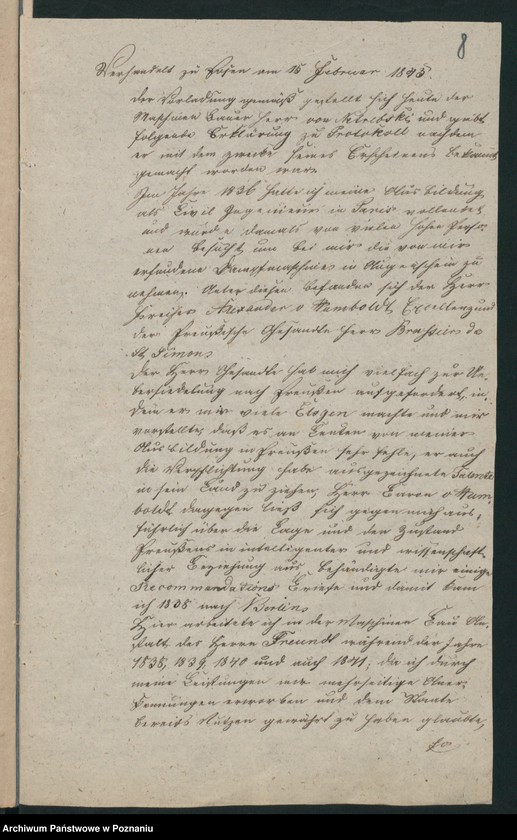 8
Verhandelt zu Posen am 15 Februar 1845.
Der Vorladung gemäß gestellt sich heute der
Maschinen Bauer Herr von und giebt
folgende Erklärung zu Protokoll nachdem
er mit dem Zwecke seines Erscheinens bekannt
gemacht worden war.
Im Jahre 1836 hatte ich meine Ausbildung
als Civil Ingenieur in Paris vollendet
und wurde damals von vielen hohen Perso-
nen besucht um bei mir die von mir
erfundene Dampfmaschine in Augenschein zu
nehmen. Unter diesen befanden sich der Herr
Freiherr Alexander v Humboldt Excellenz und
der Preußische Gesandte Herr de
St. Simon.
Der Herr Gesandte hat mich vielfach zur Ue-
bersiedelung nach Preußen aufgefordert, in-
dem er mir viele Elogen machte und mir
vorstellte, daß es an Leuten von meiner
Ausbildung in Preußen sehr fehle, er auch
die Verpflichtung habe ausgezeichnete Talente
in sein Land zu ziehen, Herr Baron v Hum-
boldt dagegen ließ sich gegen mich aus-
führlich über die Lage und den Zustand
Preußens in intelligenter und wissenschaft-
licher Beziehung aus, behändigte mir einige
Recommendations Briefe und damit kam
ich 1838 nach Berlin.
Hier arbeitete ich in der Maschinen Bau An-
stalt des Herrn Freundt während der Jahre
1838, 1839, 1840 und auch 1841; da ich durch
meine Leistungen mir mehrseitige Aner-
kennungen erworben und dem Staate
bereits Nutzen gewährt zu haben glaubte,
so
Archiwum Państwowe w Poznaniu
www.szukajwarchiwach.pl